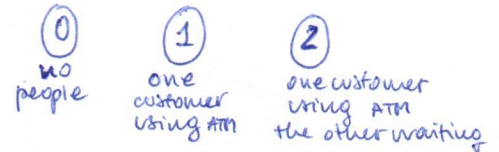 0
no
people
1
one
customer
using ATM
2
one customer
using ATM
the other waiting